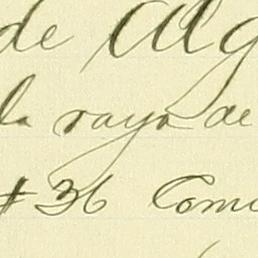 de Alg
la raya de
# 36 Comi